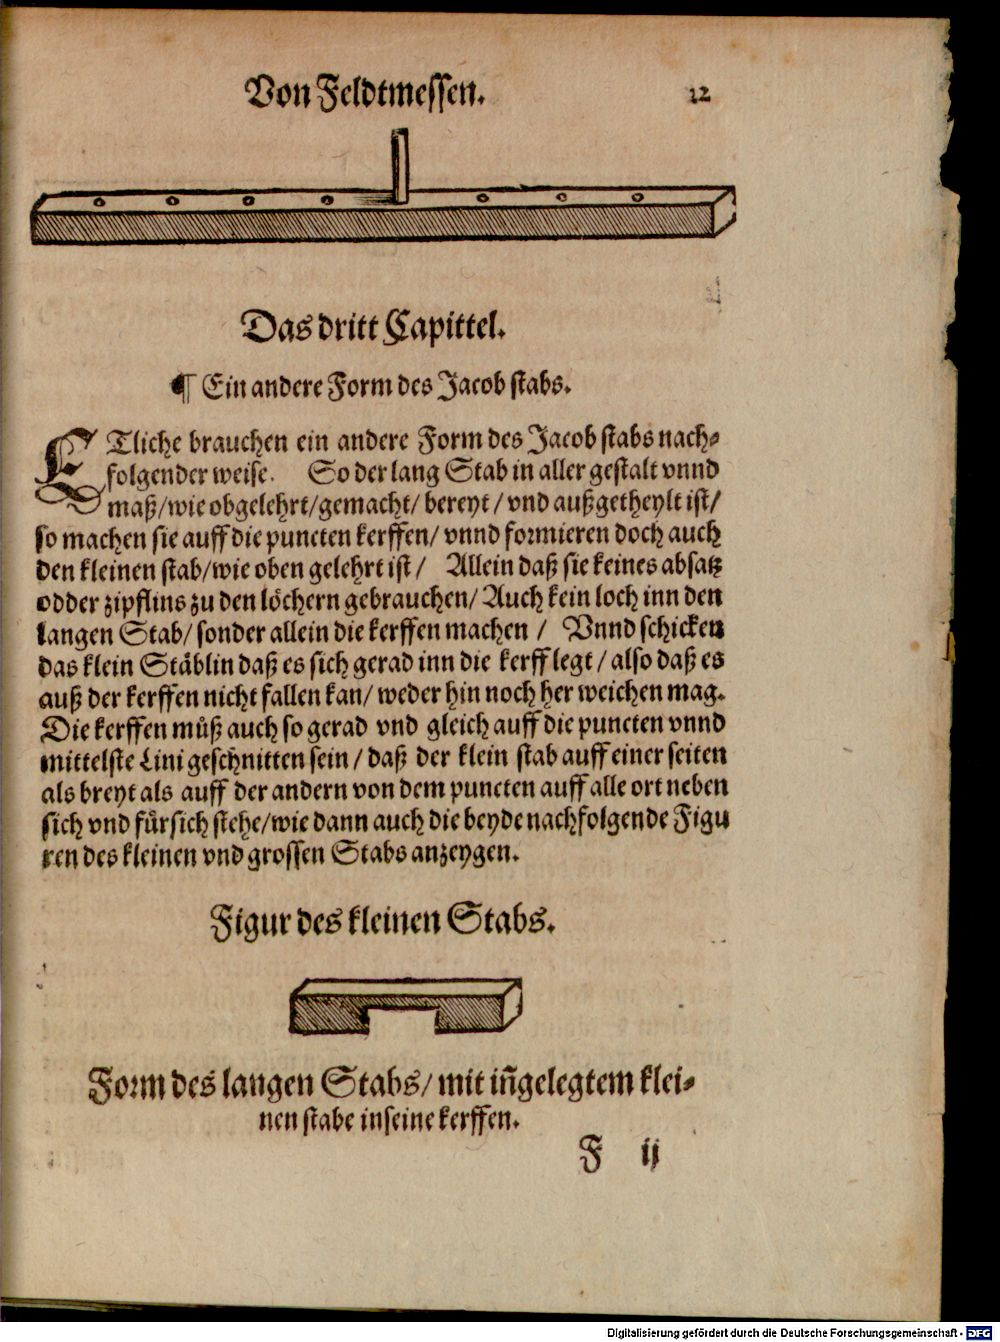 Von Feldtmessen. 12
Das dritt Capittel.
¶ Ein andere Form des Jacob stabs.
ETliche brauchen ein andere Form des Jacob stabs nach⸗
folgender weise. So der lang Stab in aller gestalt vnnd
maß/wie obgelehrt/gemacht/ bereyt / vnd außgetheylt ist/
so machen sie auff die puncten kerffen/ vnnd formieren doch auch
den kleinen stab/wie oben gelehrt ist/ Allein daß sie keines absatz
odder zipflins zu den löchern gebrauchen/ Auch kein loch inn den
langen Stab/ sonder allein die kerffen machen / Vnnd schicken
das klein Stäblin daß es sich gerad inn die kerff legt / also daß es
auß der kerffen nicht fallen kan/ weder hin noch her weichen mag.
Die kerffen müß auch so gerad vnd gleich auff die puncten vnnd
mittelste Lini geschnitten sein / daß der klein stab auff einer seiten
als breyt als auff der andern von dem puncten auff alle ort neben
sich vnd für sich stehe/wie dann auch die beyde nachfolgende Figu
ren des kleinen vnd grossen Stabs anzeygen.
Figur des kleinen Stabs.
Form des langen Stabs/ mit iñgelegtem klei⸗
nen stabe in seine kerffen.
F ij
Digitalisierung gefördert durch die Deutsche Forschungsgemeinschaft - DFG